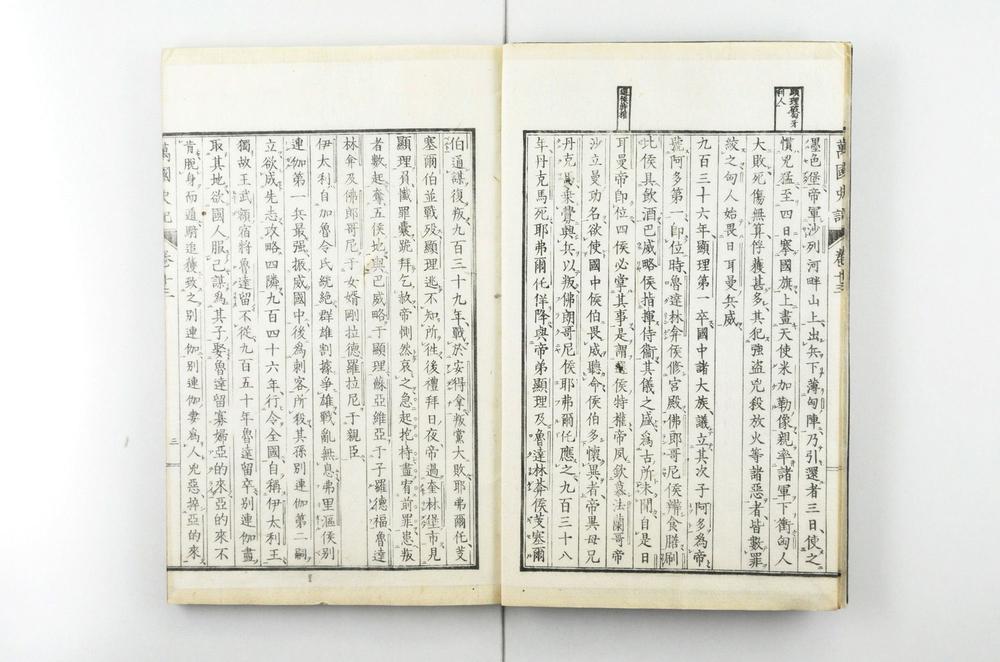 顯理破匈牙
利人
萬國史記 卷十三
墨色堡帝軍沙列河畔山上出兵下薄匈陣乃引還者三日使之
憤兕猛至四日搴國旗上畫天使米加勒像親率諸軍下衝匈人
大敗死傷無算俘獲甚多其犯強盜兇殺放火等諸惡者皆數罪
絞之匈人始畏日耳曼兵威
九百三十六年顯理第一卒國中諸大族議立其次子阿多為帝
號阿多第一卽位時魯達林弇侯修宮殿佛郎哥尼侯辨食膳刷
此侯具飲酒巴威略侯指揮侍衞其儀之盛爲古所未聞自是日
耳曼帝卽位四侯必掌其事是謂侯特權帝夙欽慕法蘭哥帝
沙立曼功名欲使國中侯伯畏威聽命侯伯多懷異者帝異母兄
丹克馬乘釁興兵以叛佛朗哥尼侯耶弗爾任應之九百三十八
年丹克馬死耶弗爾任佯降與帝弟顯理及魯達林弇侯芰塞爾
伯通謀復叛九百三十九年戰於安得拿叛黨大敗耶弗爾任芰
塞爾伯並戰歿顯理逃不知所徃後禮拜日夜帝過奎林堡市見
顯理員懺罪囊號拜乞赦帝惻然哀之急起抱持盡宥前罪患叛
者數起奪五侯地與巴威略于顯理蘇亞維亞于子羅德福魯達
林弇及佛郎哥尼于女婿剛拉德羅拉尼于親臣
伊太利自加魯令氏統絕群雄割據爭雄戰亂無息弗里漚侯別
連伽第一兵最强振威國中後為刺客所殺其孫別連伽第二嗣
立欲成先志攻略四隣九百四十六年行令全國自稱伊太利王
獨故王武額宿將魯達留不從九百五十年魯達留卒別連伽盡
取其地欲國人服己謀為其子娶魯達留寡婦亞的來亞的來不
肯脫身而遁蹤追獲致之別連伽別連伽妻爲人兇惡捽亞的來
萬國史記 卷十三 三